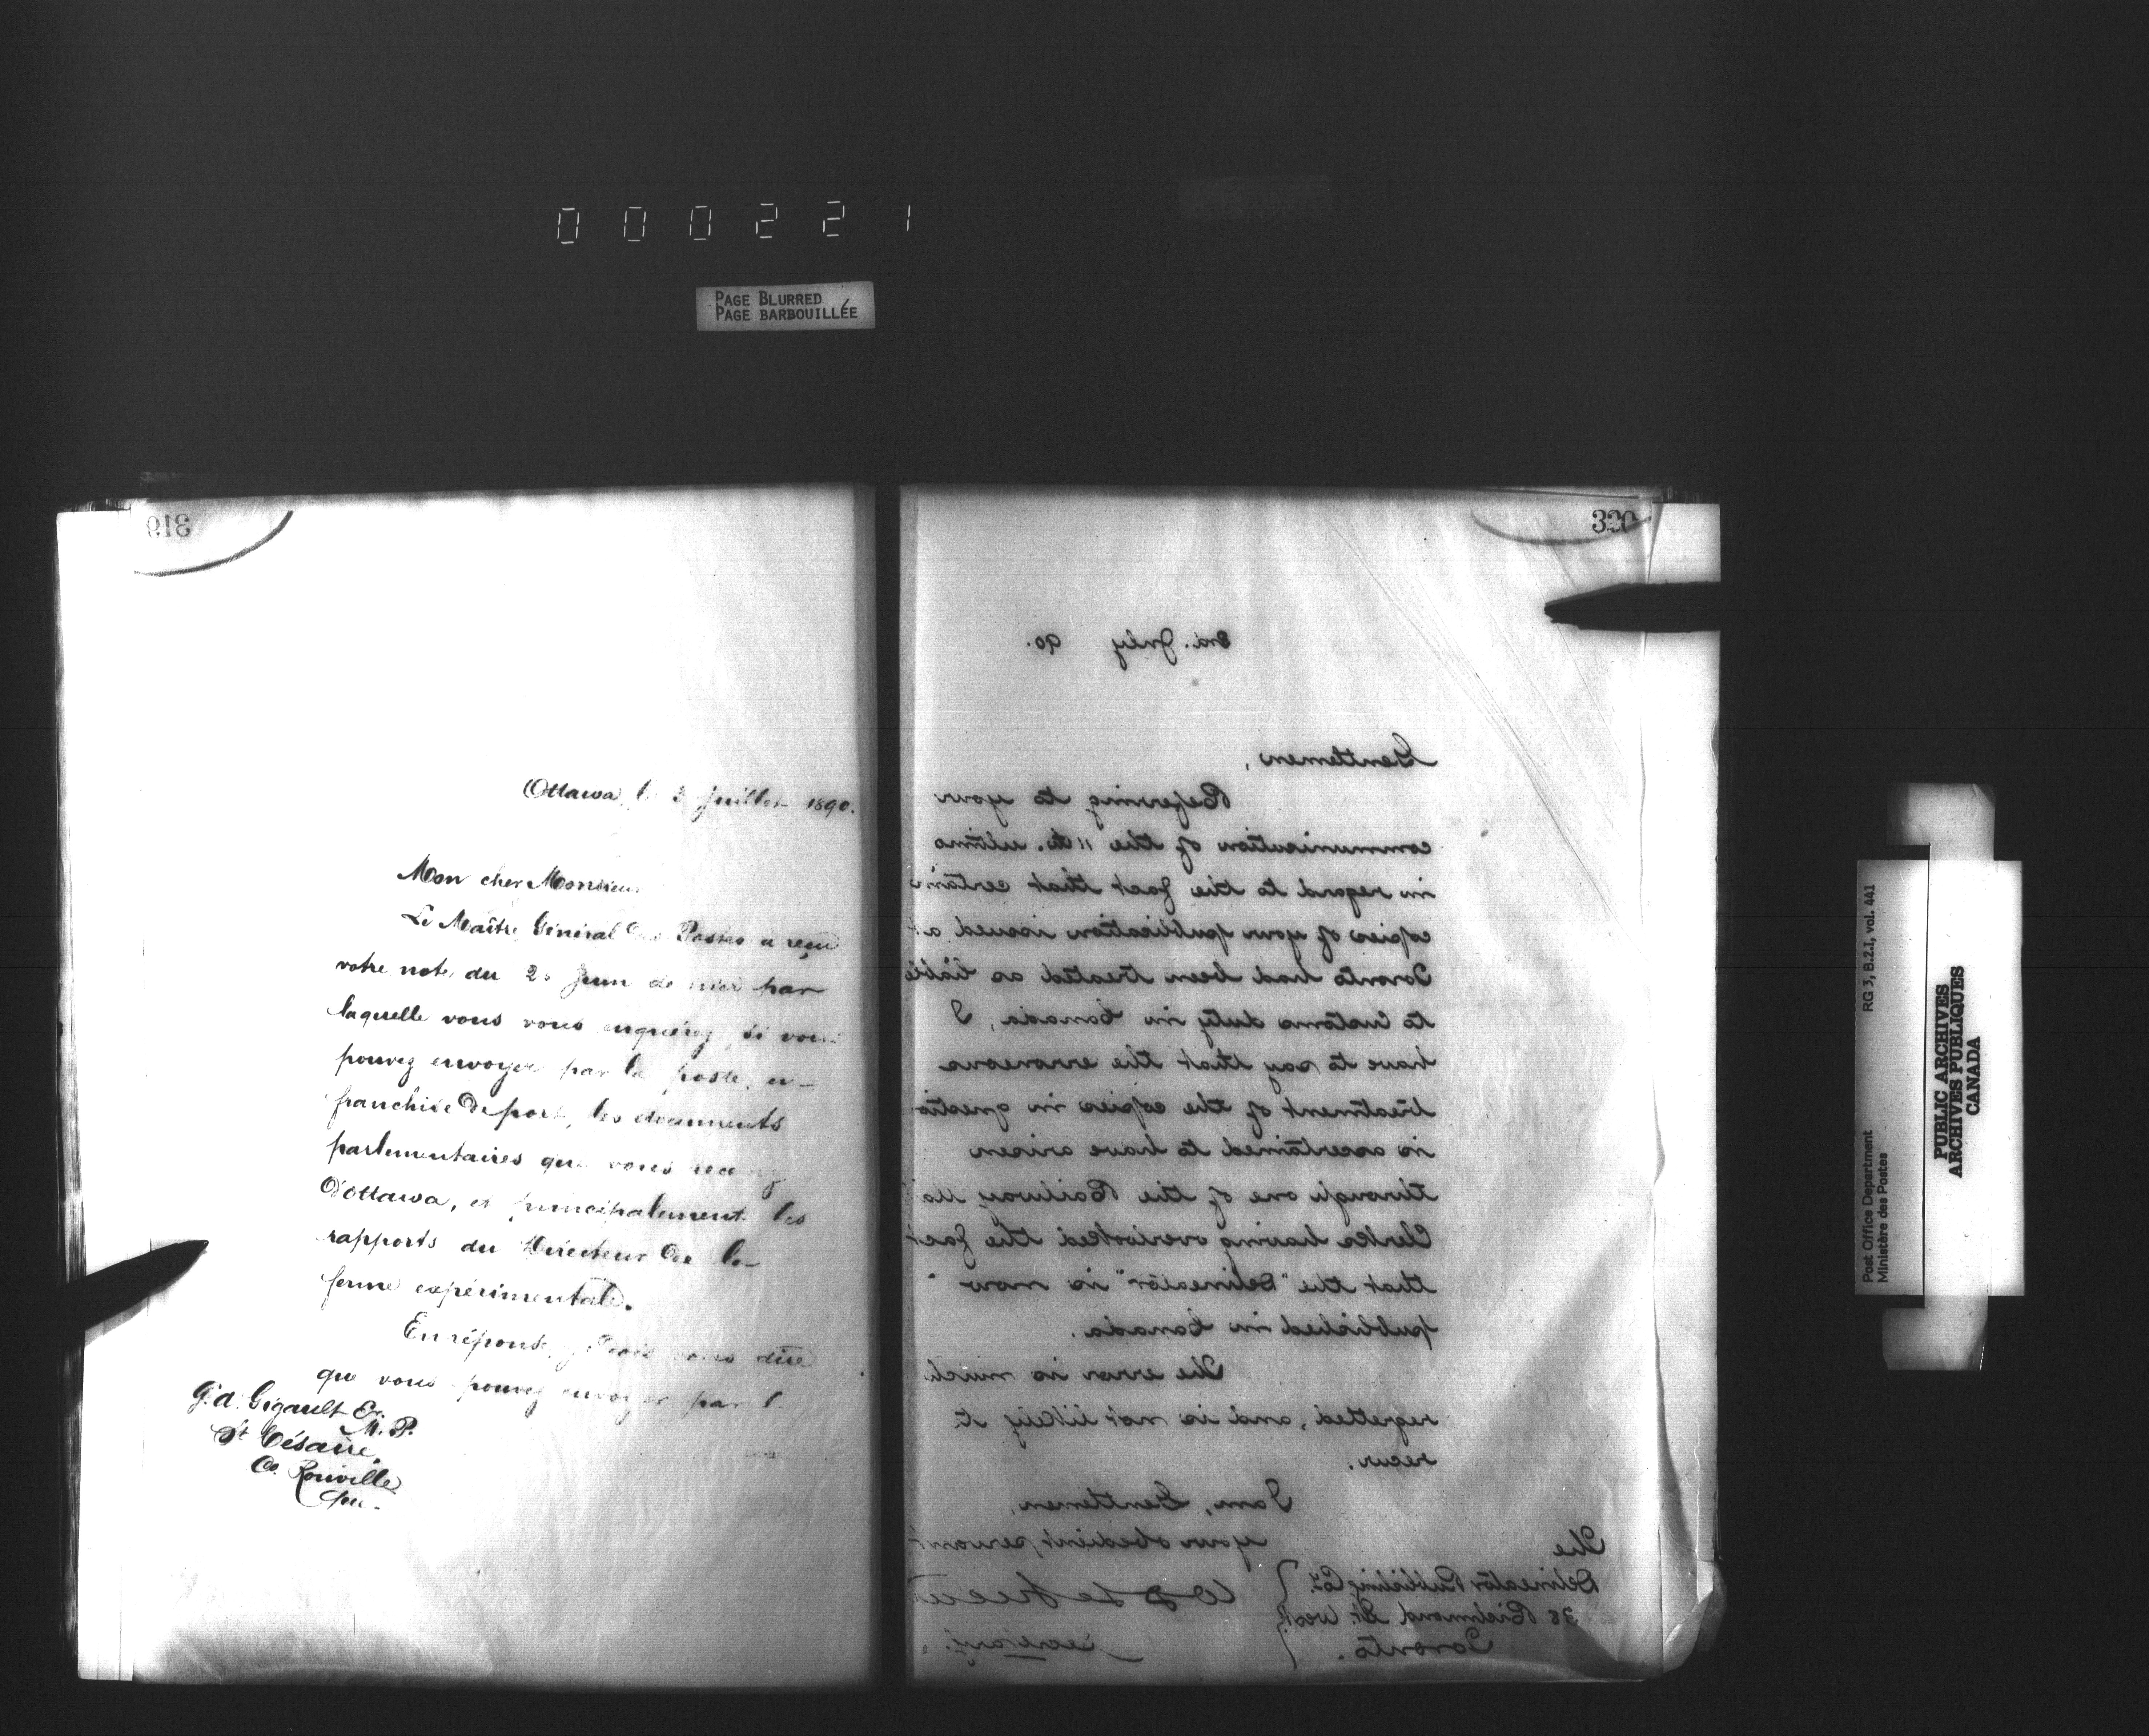 000221
PAGE BLURRED
PAGE BARBOUILLÉE
319
Ottawa, le 3 Juillet 1890.
Mon cher Monsieur
Le Maître Général des Postes a reçu
votre note du 20 Juin dernier par
laquelle vous vous enquérez si vous
pouvez envoyer par la poste, en
franchise de port, les documents
parlementaires que vous recevez
d'Ottawa, et principalement les
rapports du Directeur de la
ferme expérimentale.
En réponse, je dois vous dire
que vous pouvez envoyer par l
G. A. Gigault Er.
M. P.
St Césaire,
Co. Rouville
Que.
320
3rd. July 90.
Gentlemen,
Referring to your
communication of the 11th. ultimo
in regard to the fact that certain
copies of your publication issued at
Toronto had been treated as liable
to Customs duty in Canada, I
have to say that the erroneous
treatment of the copies in questio
is ascertained to have arisen
through one of the Railway Ma
Clerks having overlooked the fact
that the "Delineator" is now
published in Canada.
The error is much
regretted, and is not likely to
recur.
I am, Gentlemen,
your obedient servant
Secretary.
The
Delineator Publishing Co.
38 Richmond St. West,
Toronto.
Post Office Department RG 3, B.2.I, vol. 441
Ministère des Postes
PUBLIC ARCHIVES
ARCHIVES PUBLIQUES
CANADA